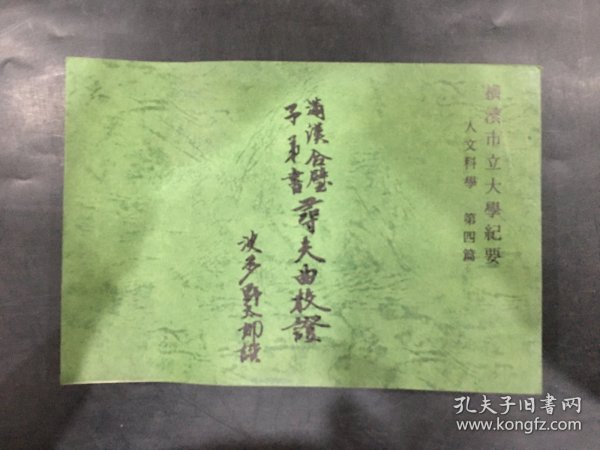 橫濱市立大學紀要
人文科學 第四篇
滿漢合璧
子弟書
尋夫曲校證
波多野太郎
孔夫子旧书网
www.kongfz.com